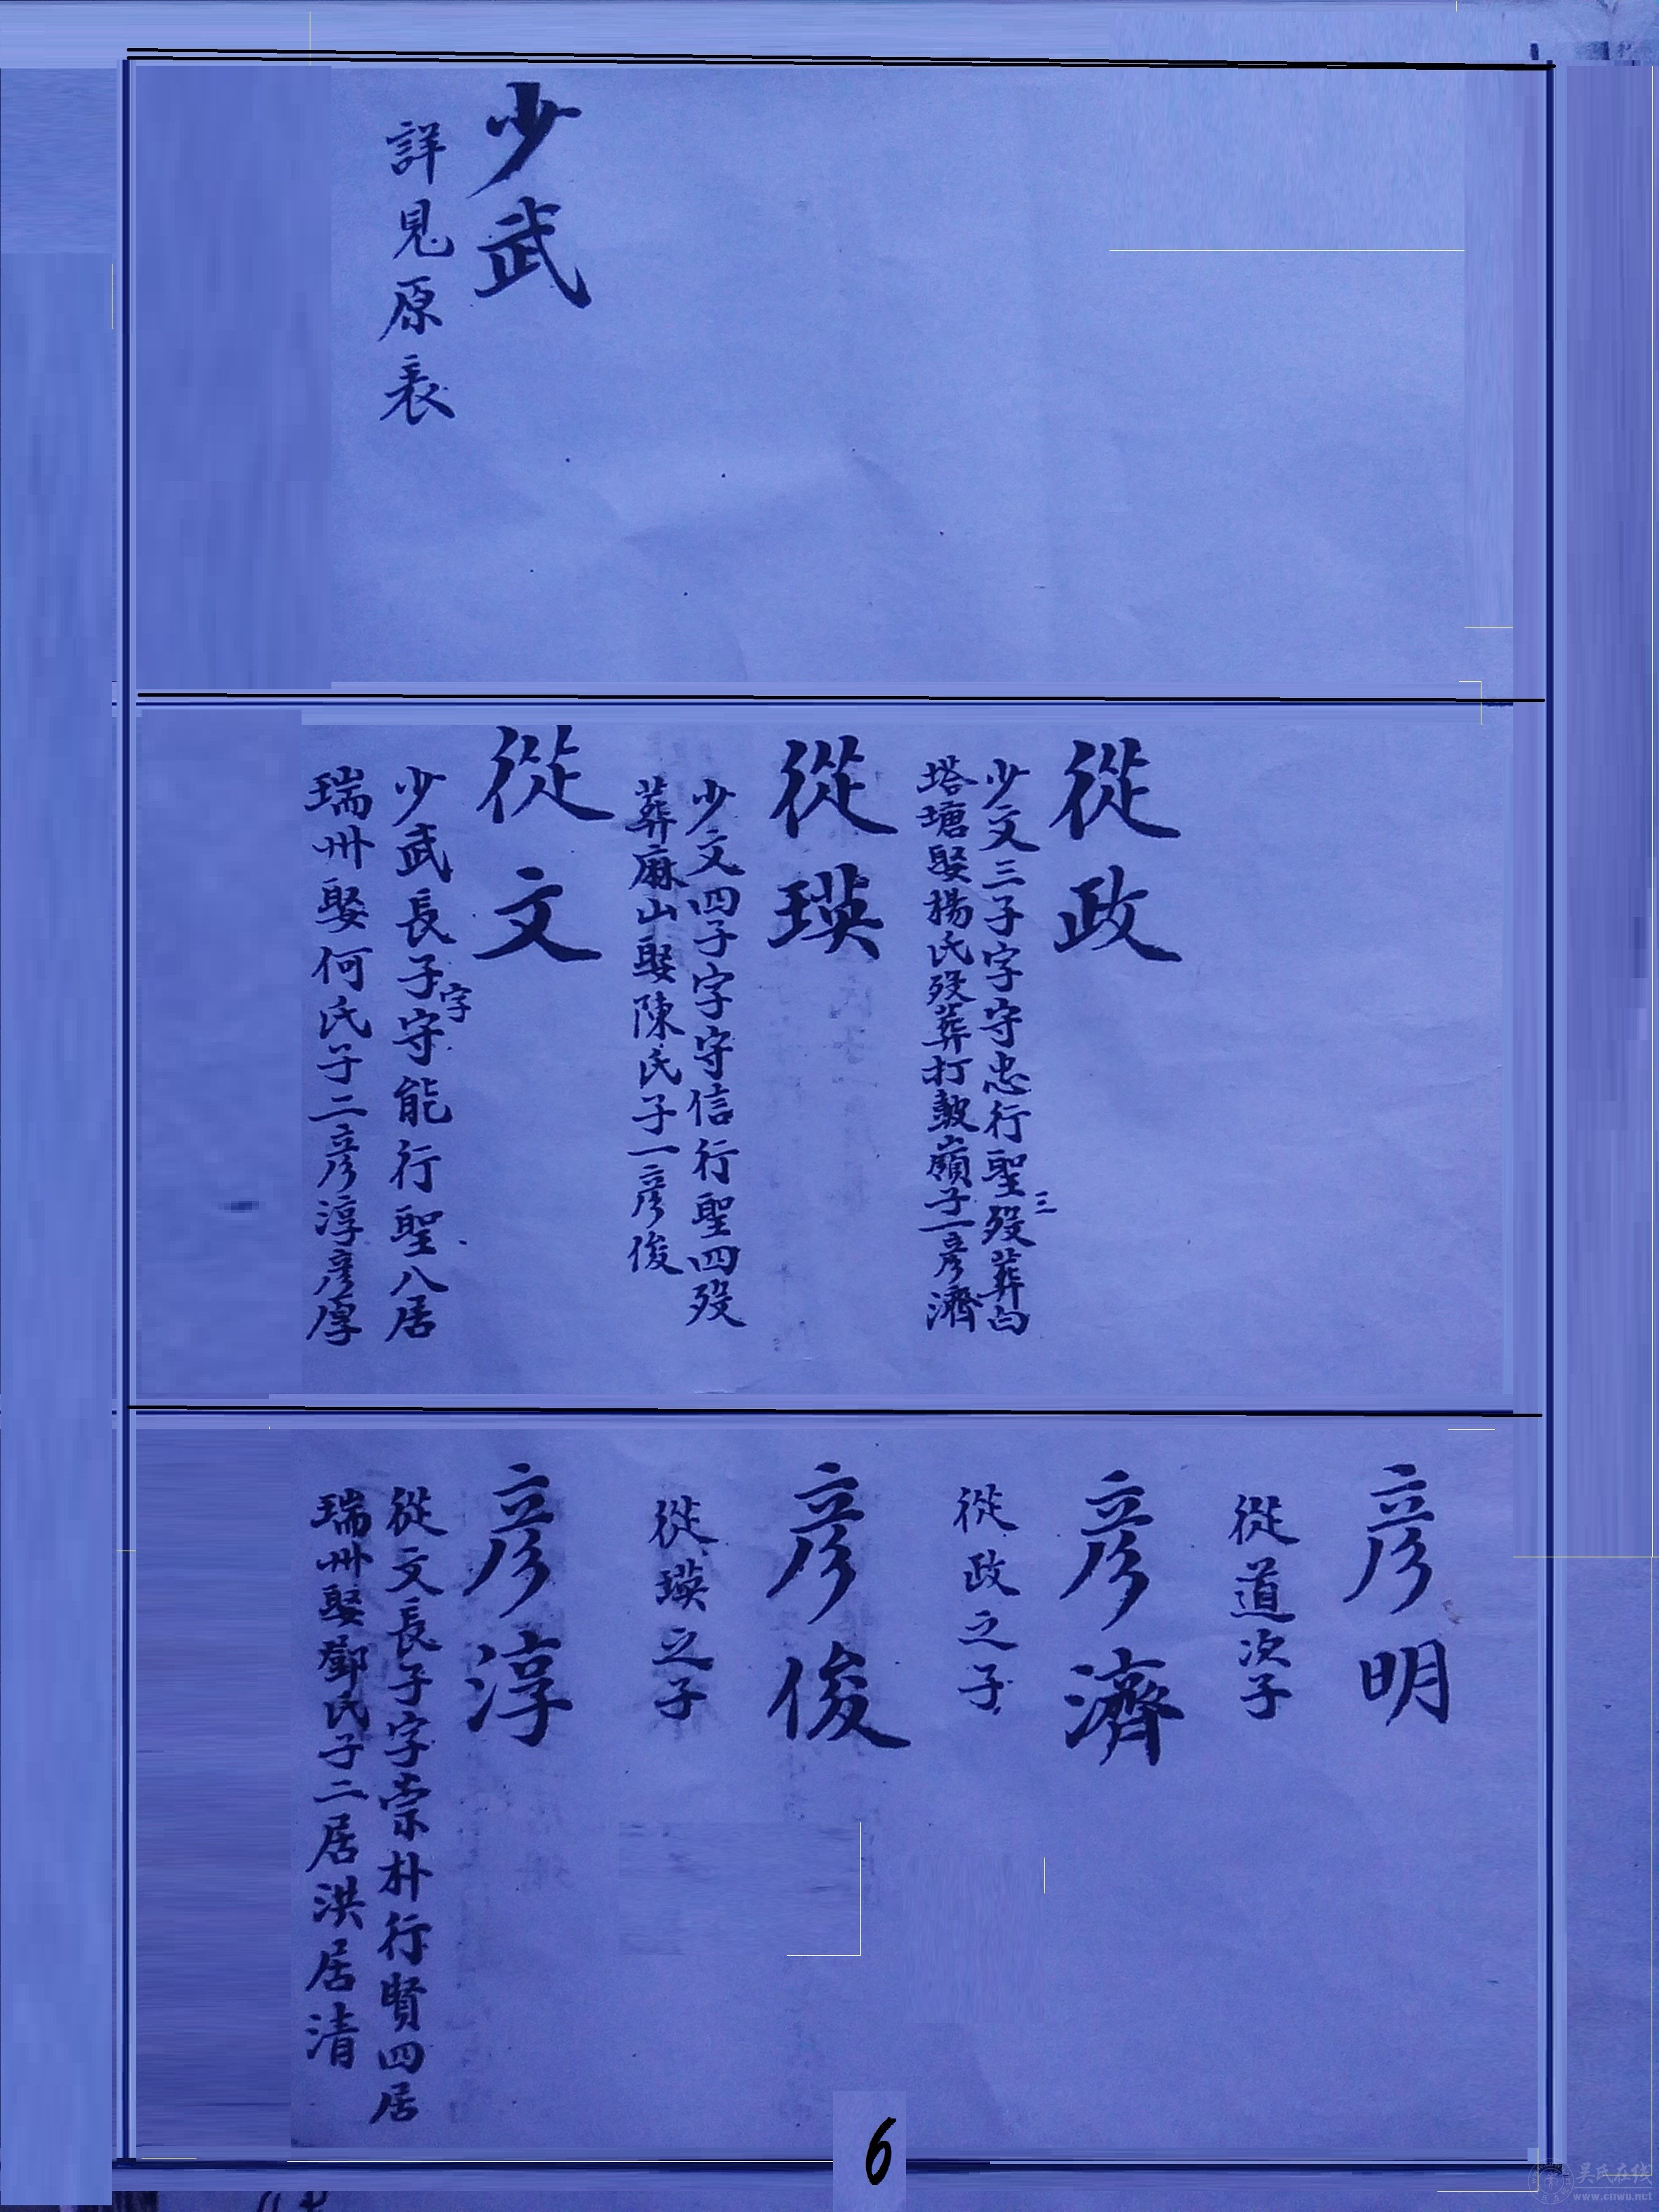 少武
詳見原表
從政
少文三子字守忠行聖三歿葬白
塔塘娶楊氏歿葬打鼓嶺子一彥濟
從瑛
少文四子字守信行聖四歿
葬麻山娶陳氏子一彥俊
從文
少武長子字守能行聖八居
瑞州娶何氏子二彥淳彥厚
彥明
從道次子
彥濟
從政之子
彥俊
從瑛之子
彥淳
從文長子字崇朴行賢四居
瑞州娶鄧氏子二居洪居清
6
吴氏在线
www.cnwu.net